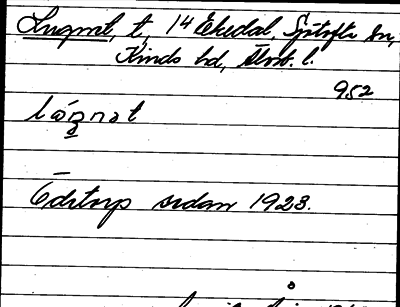 Lugnet, t., 14 Ekedal, Sjötofta sn,
Kinds hd, Älvsb. l.
952
Ödetorp sedan 1923.